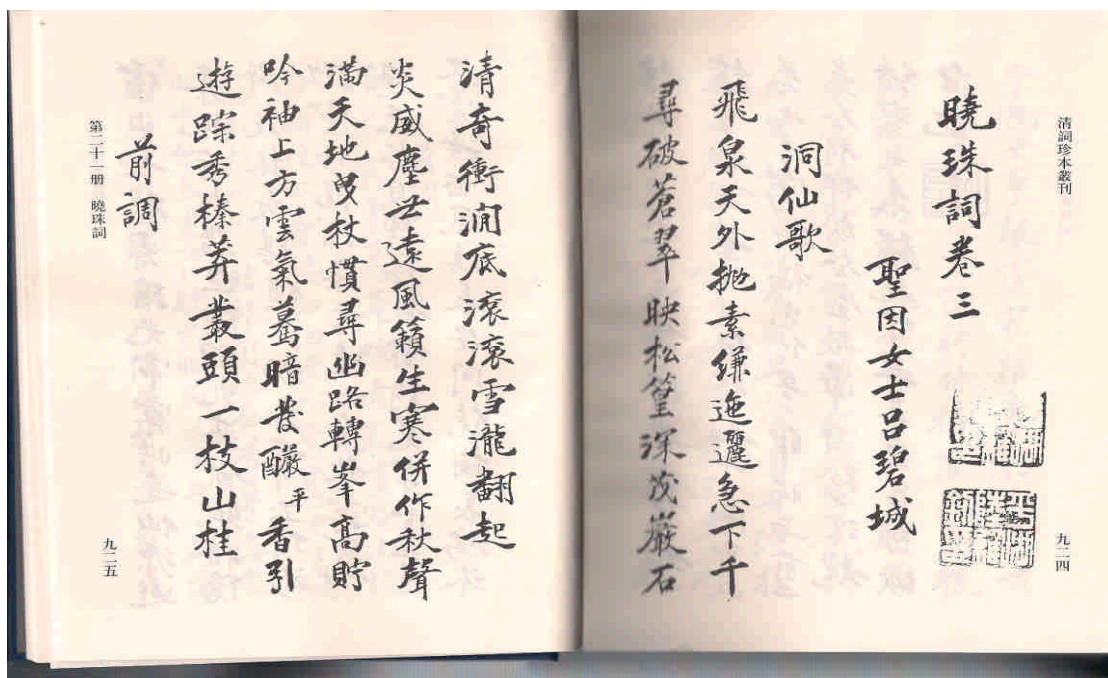 清詞珍本叢刊
曉珠詞卷三
聖因女士呂碧城
洞仙歌
飛泉天外拋素縑迤邐急下千
尋破蒼翠映松篁深茂巖石
九二四
清奇衝澗底滾滾雪瀧翻起
炎威塵世遠風籟生寒併作秋聲
滿天地曳杖慣尋幽路轉峯高貯
吟袖上方雲氣驀暗發釅平香引
遊踪秀榛莽叢頭一枝山桂
前調
第二十一册 曉珠詞
九二五